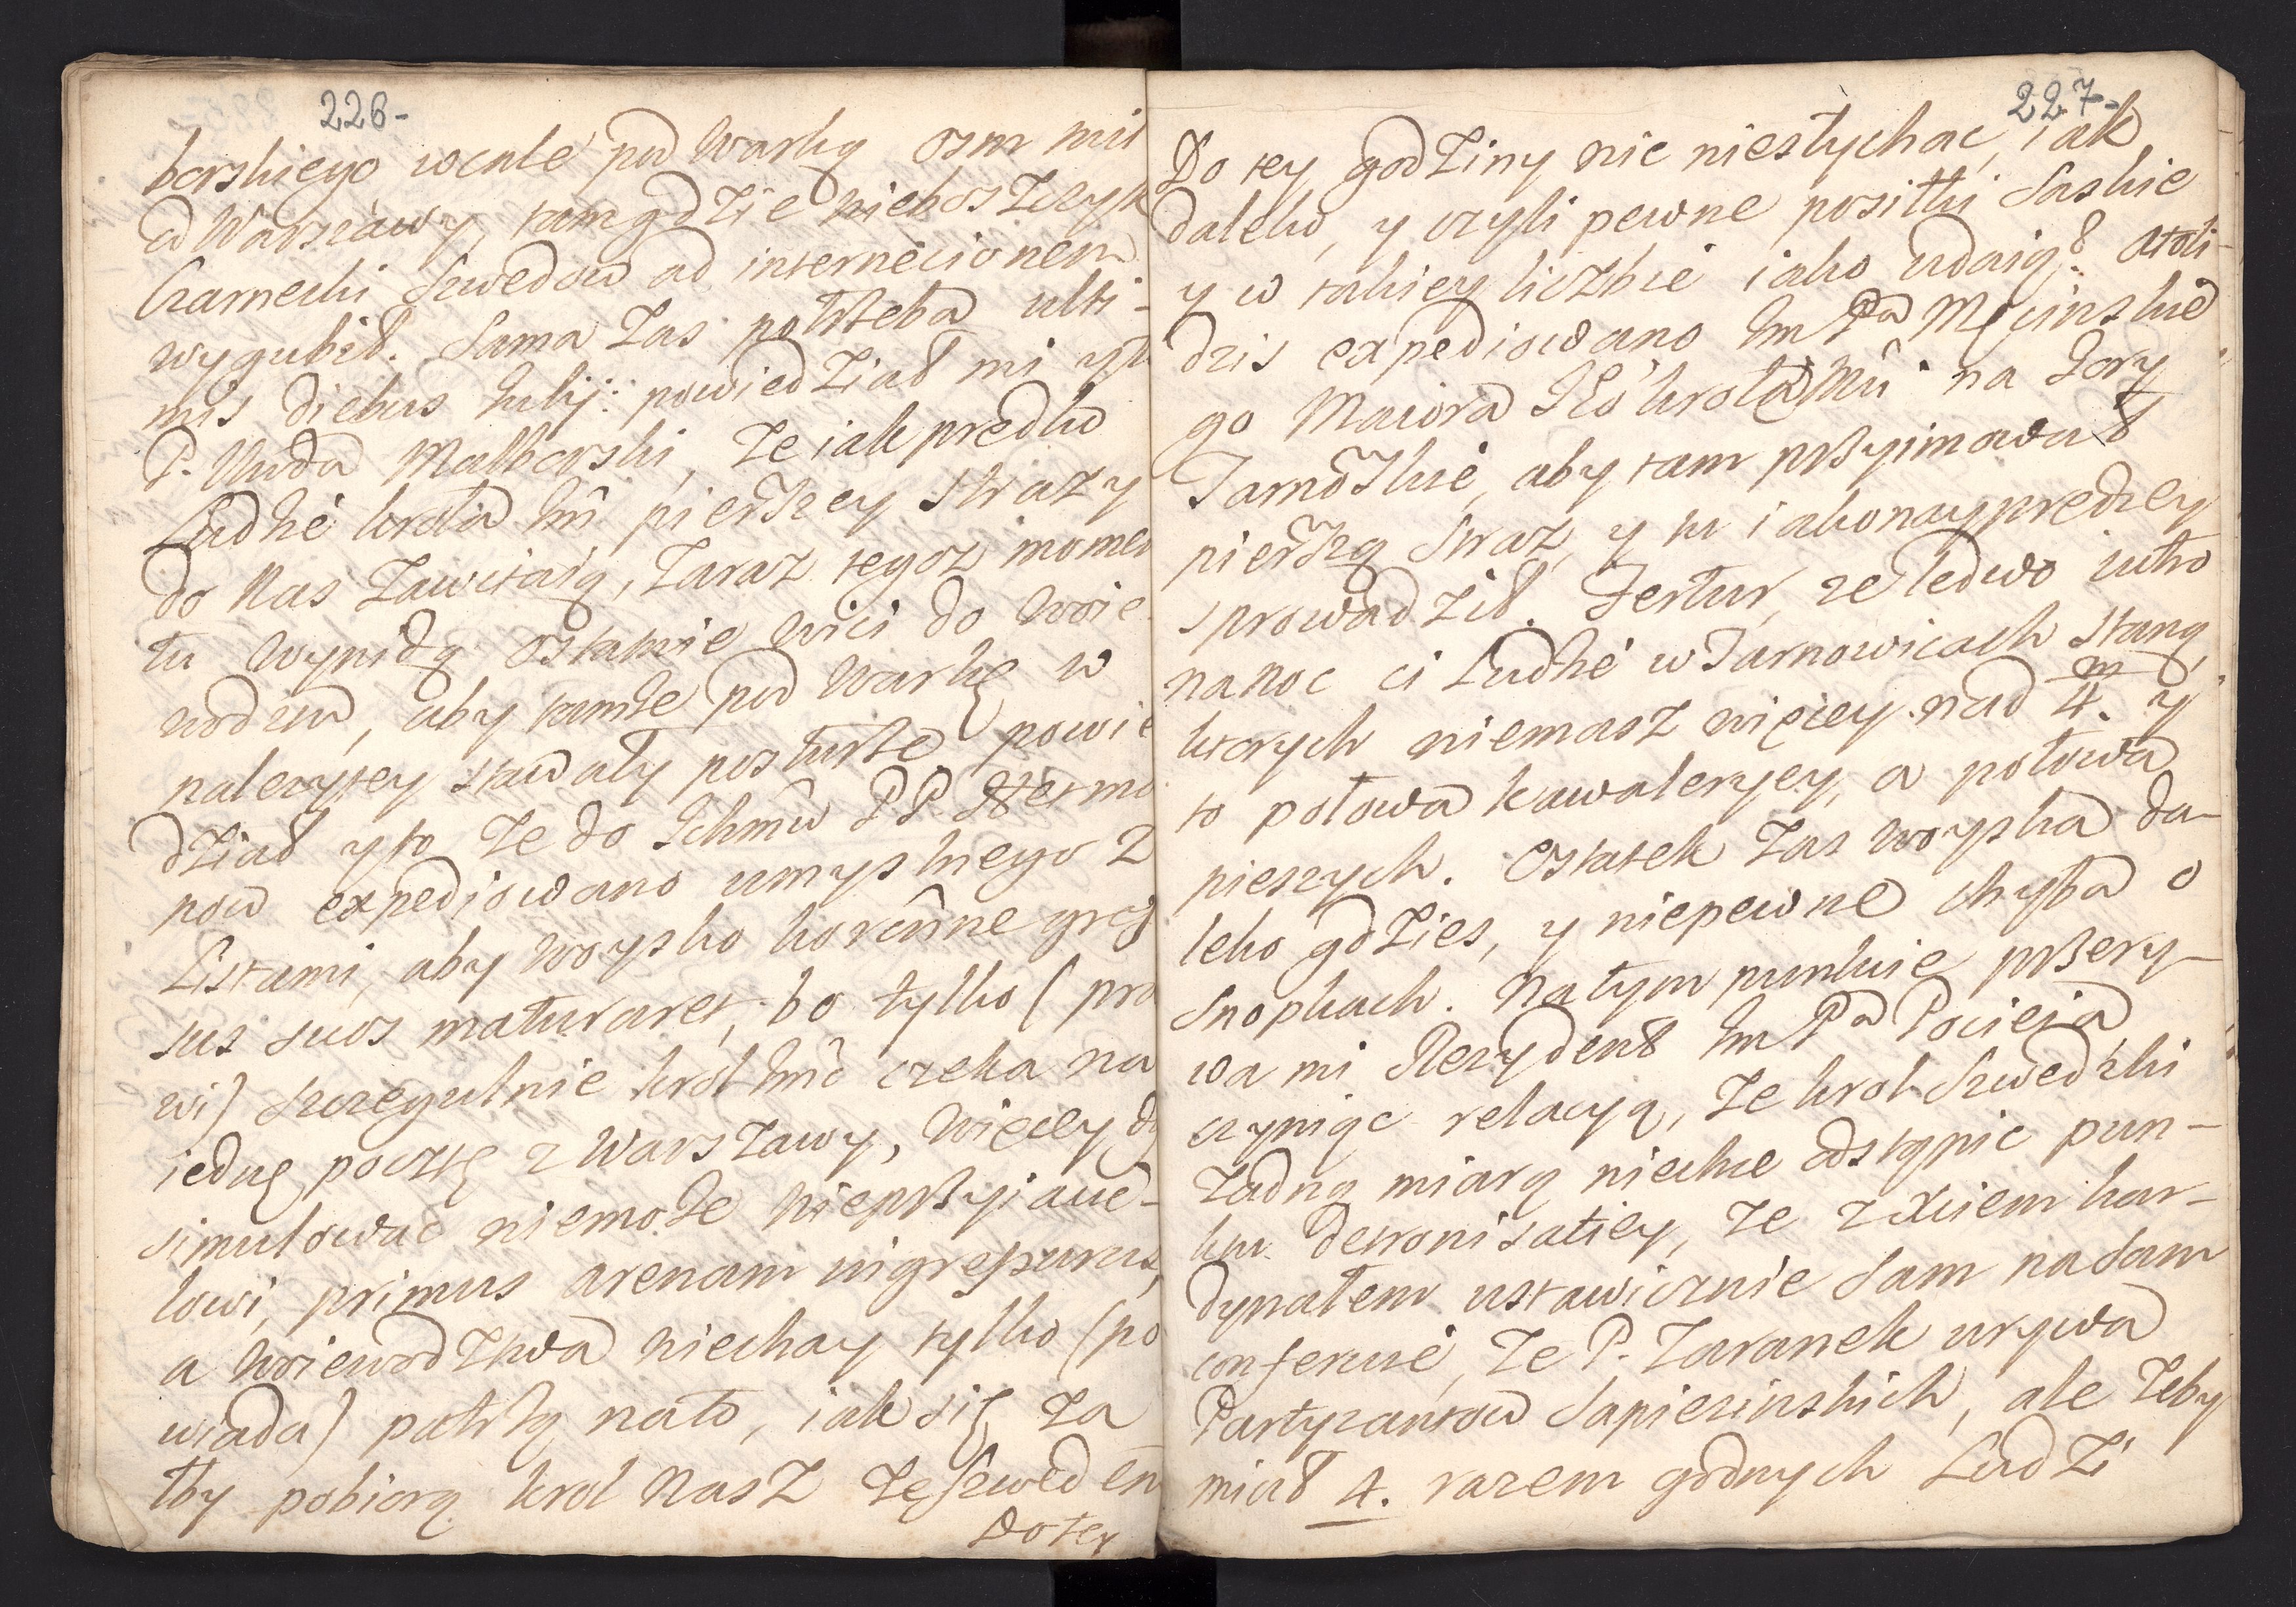 226-
borskiego wcale pod Warką osm mil
od Warszawy, tam gdzie nieboszczyk
Czarnecki Szwedow ad internecionem
wygubił. Sama zas potrzeba ulti-
mis diebus Julij: powiedział mi
P. Malborski, ze iak prędko
Ludzie krola Jm̂ pierszey strazy
do nas zawitaią, zaraz tegoz momen
tu wynidą ostatnie wici do Woie-
wodztw, aby tamze pod Warkę w
nalezytey stawały posturze powie
dział yto ze do Ichmw̃ PP. Hetma
now expediowano umyslnego z
Listami, aby Woysko koronne gres
sus suos maturaret, bo tylko (pra
wi) szczegulnie krol Jmc̃ czeka na
iednę pocztę z Warszawy, więcey dy
simulować niemoze nieprzyiacie-
lowi, primus arenam ingressurus,
a Woiewodztwa niechay tylko (po
wiada) patrzą nato, iak się za
łby pobiorą krol nasz ze Szweden
Dotey
227-
Do tey godziny nic niesłychac, iak
daleko, y czyli pewne posiłki Saskie
y w takiey liczbie iako udaią? atoli
dzis expediowano Jm Pa Męcinskie
go Maiora Jeo krola Mci na Gory
Tarnoskie, aby tam przyimował
pierszą straz, y tu iakonayprędzey
sprowadził. Fertur, ze ledwo iutro
nanoc ci Ludzie w Tarnowicach staną,
ktorych niemasz więcey nad 4/m. y
to połowa kawaleryey, a połowa
pieszych. Ostatek zas woyska da-
leko gdzies, y niepewne chyba o
Snopkach. Natym punkcie przery-
wa mi Rezydent Jm Pa Pocieia
czyniąc relacyą, ze krol Szwedzki
zadną miarą niechce odstąpic pun-
ktu detronisatiey, ze z Xciem kar-
dynałem ustawicznie sam nasam
conferuie, ze P. Zaranek urywa
Partyzantow Sapiezinskich, ale zeby
miał 4. razem godnych Ludzi